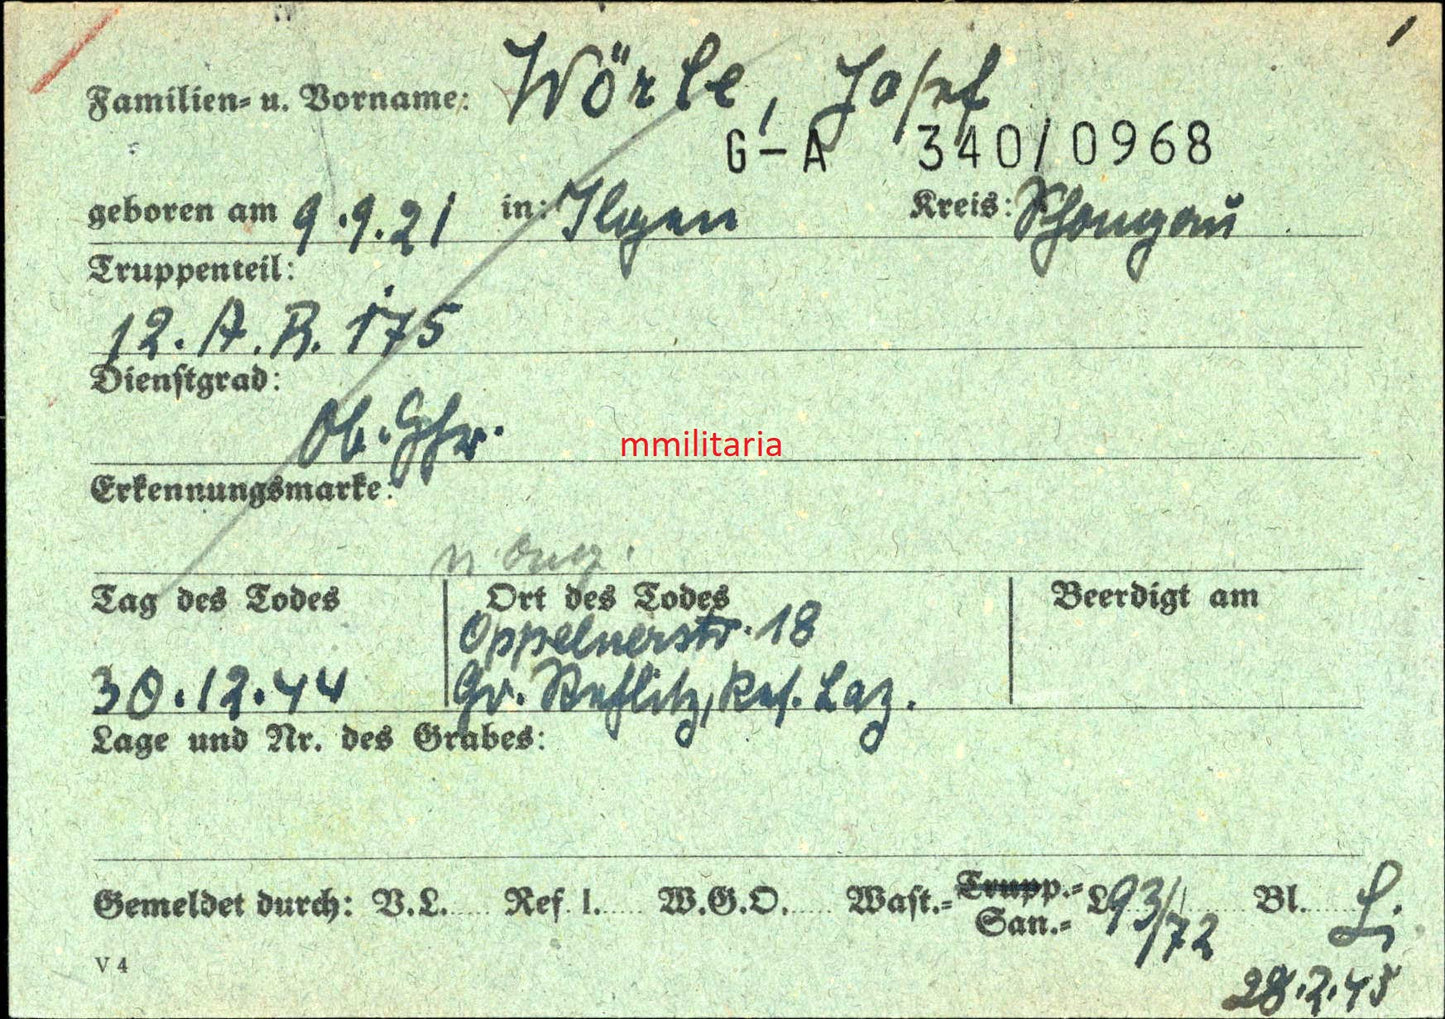 Familien- u. Vorname: Wörle, Josef
G-A 340/0968
geboren am 9.9.21 in: Ilgen Kreis: Schongau
Truppenteil:
12. A. R. 175
Dienstgrad:
Ob. Gfr.
mmilitaria
Erkennungsmarke:
Tag des Todes Ort des Todes Beerdigt am
Oppelnerstr. 18
30.12.44 Gr. Res. Laz.
Lage und Nr. des Grabes:
Gemeldet durch: V.L. Ref. I. W.G.O. Wast.- Trupp.- San.- L 93/72 Bl. Li
V 4
28.2.45